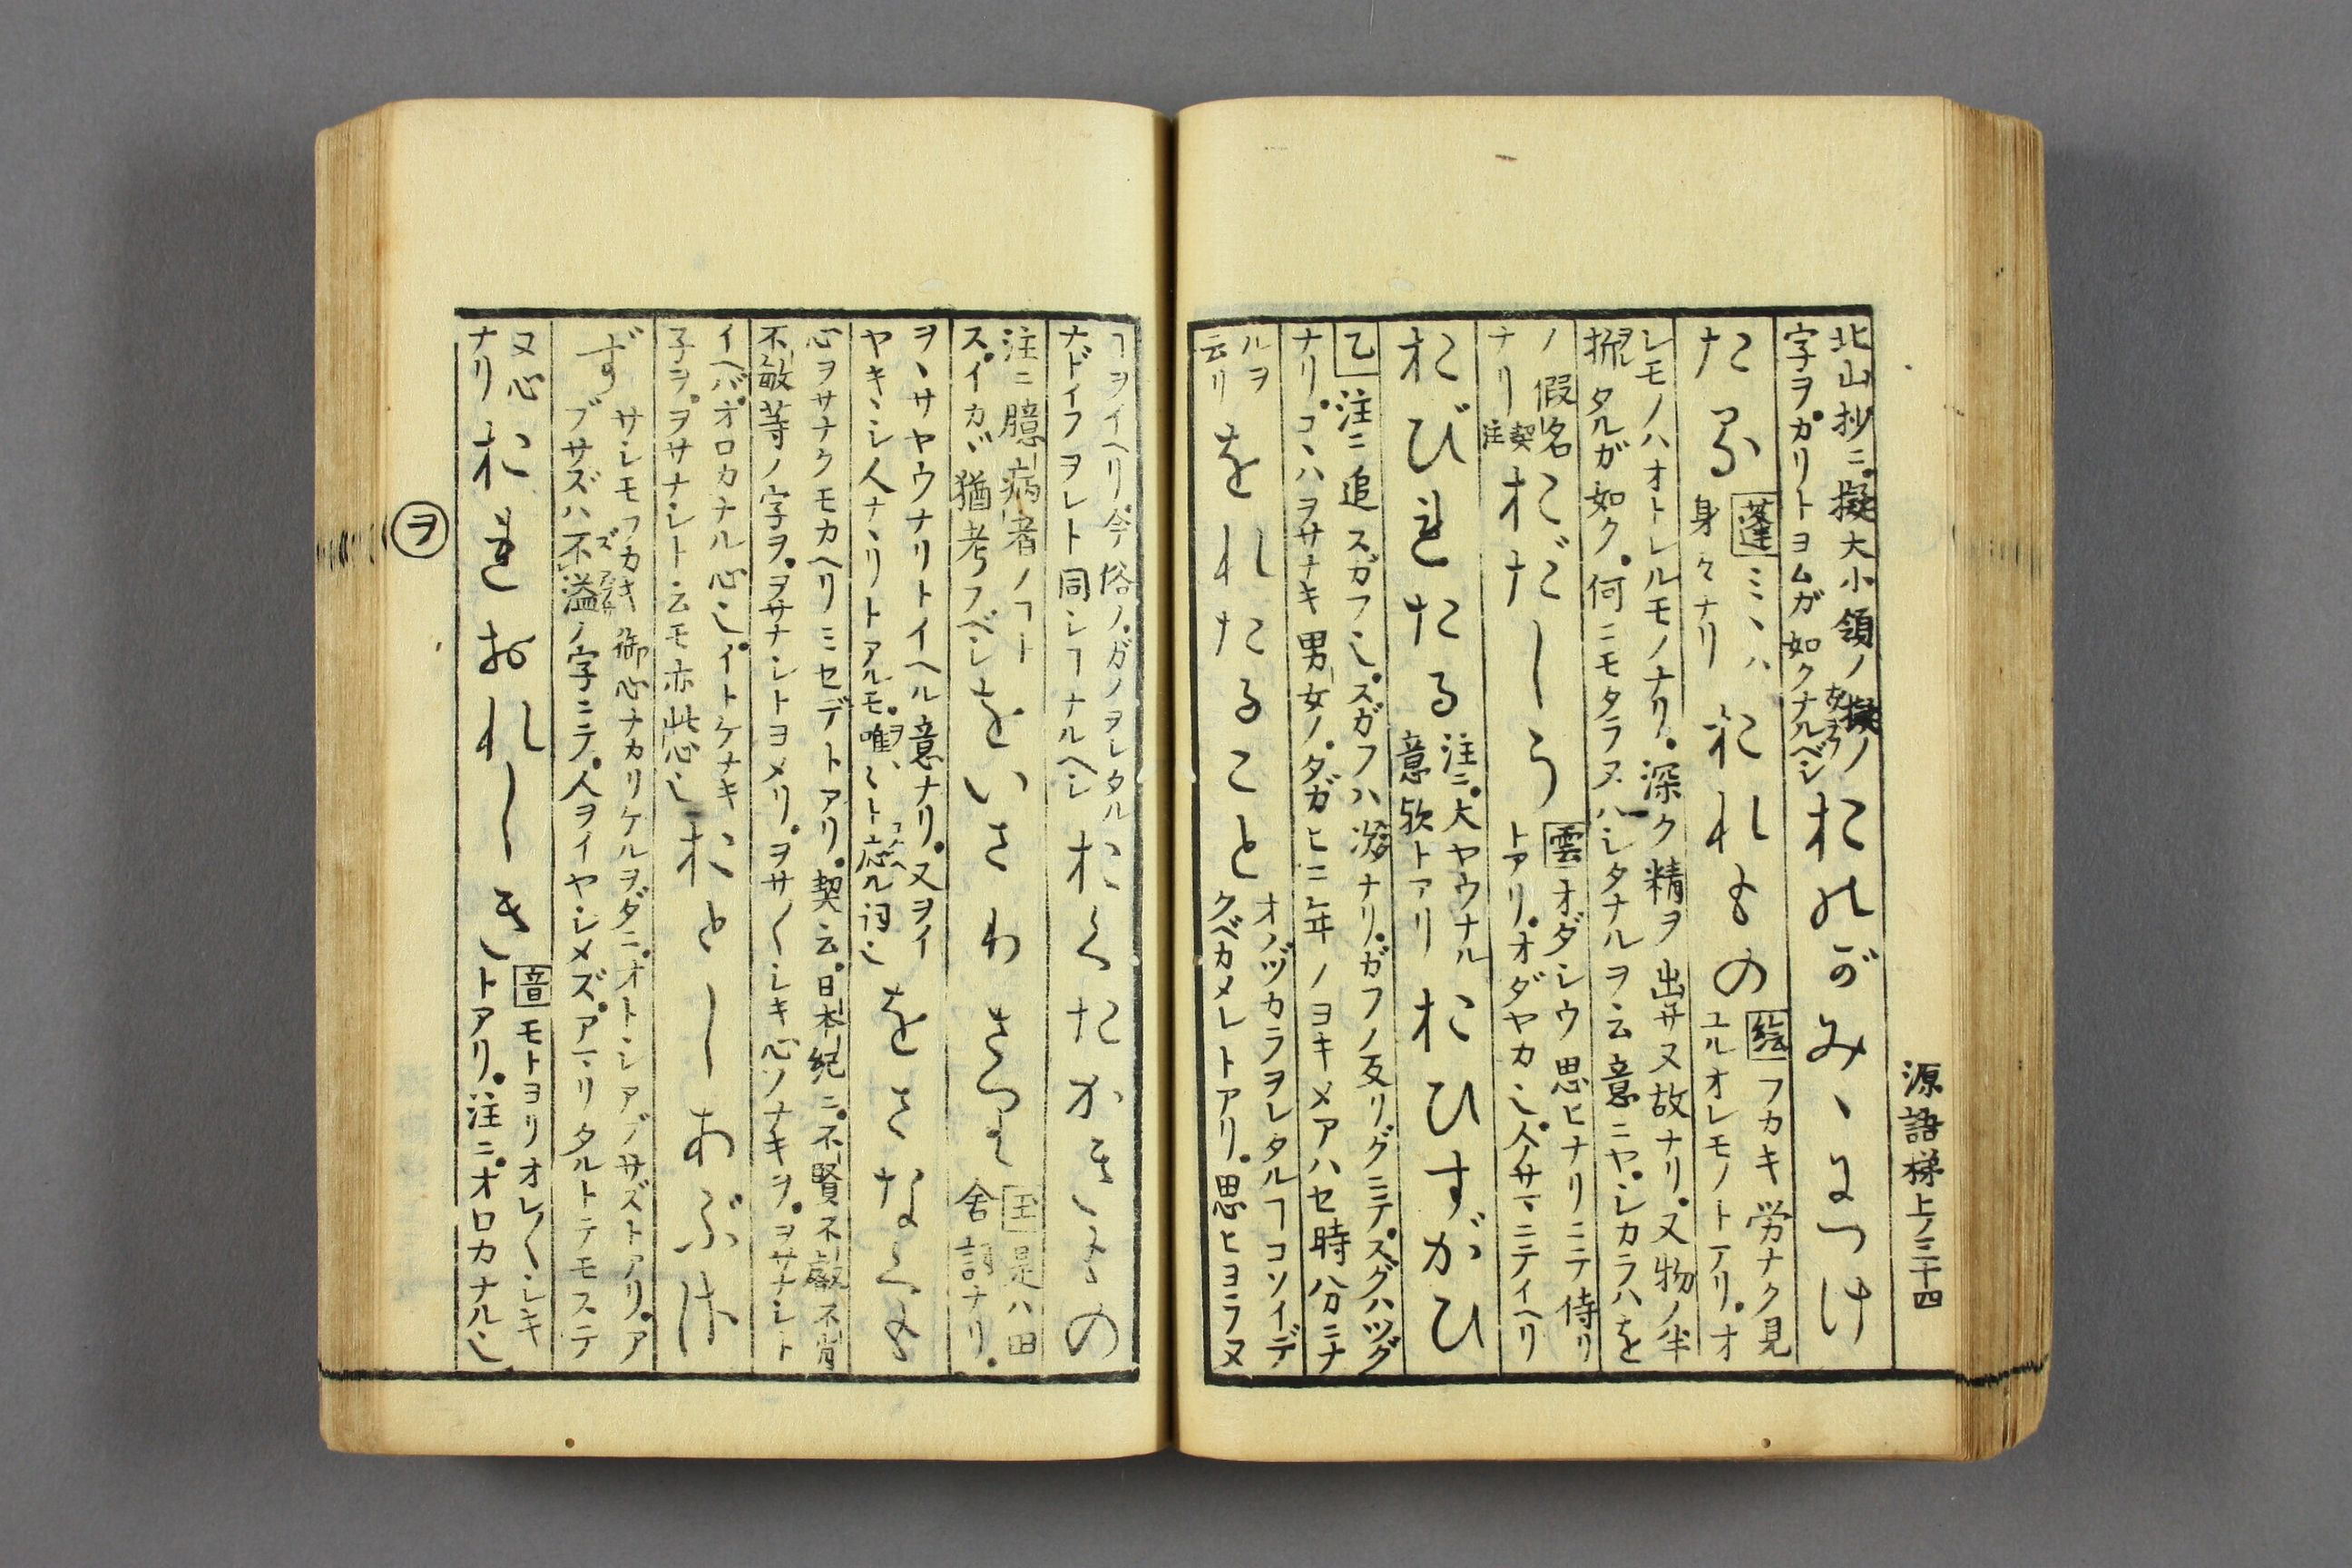 源語梯上ノ三十四
北山抄ニ擬大小領ノ擬ノ
字ヲカリトヨムガ如クナルベシ
おのがみゝにつけ
たる
蓬ミヽハ
身々ナリ
おれもの
絵フカキ労ナク見
ユルオレモノトアリ。オ
レモノハオトレルモノナリ。深ク精ヲ出サヌ故ナリ。又物ノ半
タルガ如ク。何ニモタラヌハシタナルヲ云意ニヤ。シカラハを
ノ假名
ナリ契注
おだしう
雲オダシウ思ヒナリニテ侍リ
トアリ。オダヤカ也。人サマニテイヘリ
おびれたる
注ニ。大ヤウナル
意歟トアリ
おひすがひ
乙注ニ追スガフ也。スガフハ次ナリ。ガフノ反リグニテ。スグハツグ
ナリ。コヽハヲサナキ男女ノ。タガヒニ年ノヨキメアハセ時分ニナ
ルヲ
云リ
をれたること
オノヅカラヲレタルヿコソイデ
クベカメレトアリ。思ヒヨラヌ
ヿヲイヘリ。今俗ノ。ガノヲレタル
ナドイフヲレト同シヿナルヘシ
おくたかきもの
注ニ臆病者ノヿト
ス。イカヾ猶考フベシ
をいさわさつる
玉是ハ田
舎詞ナリ。
ヲヽサヤウナリトイヘル意ナリ。又ヲイ
ヤキシ人ナヽリトアルモ。唯々ト應ル詞也
をさなくも
心ヲサナクモカヘリミセデトアリ。契云。日本紀ニ。不賢不叡不肖
不敏等ノ字ヲ。ヲサナシトヨメリ。ヲサ〱シキ心ソナキヲ。ヲサナシト
イヘバ。オロカナル心也。イトケナキ
子ヲ。ヲサナシト云モ亦此心也
おとしあぶさ
ず
サシモフカキ御心ナカリケルヲダニ。オトシアブサズトアリ。ア
ブサズハ不溢ノ字ニテ。人ヲイヤシメズ。アマリタルトテモステ
又心
ナリ
おれおれしき
音モトヨリオレ〱シキ
トアリ。注ニ。オロカナル也
ヲ